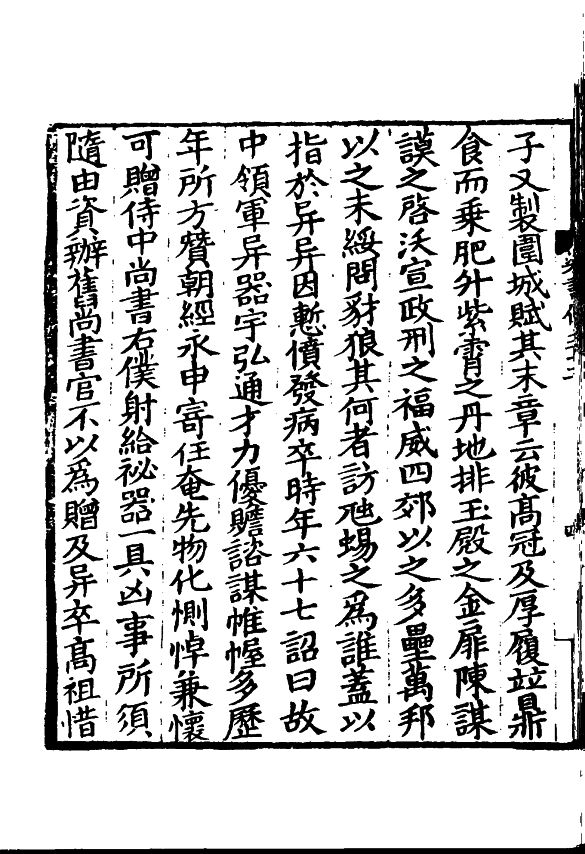 子又製圍城賦其末章云彼髙冠及厚履竝鼎
食而乗肥升紫霄之丹地排玉殿之金扉陳謀
謨之啓沃宣政刑之福威四郊以之多壘萬邦
以之未綏問豺狼其何者訪虺蜴之爲誰蓋以
指於异异因慙憤發病卒時年六十七詔曰故
中領軍异器宇弘通才力優贍諮謀帷幄多歷
年所方贊朝經永申寄任奄先物化惻悼兼懷
可贈侍中尚書右僕射給祕器一具凶事所須
隨由資辦舊尚書官不以爲贈及异卒髙祖惜